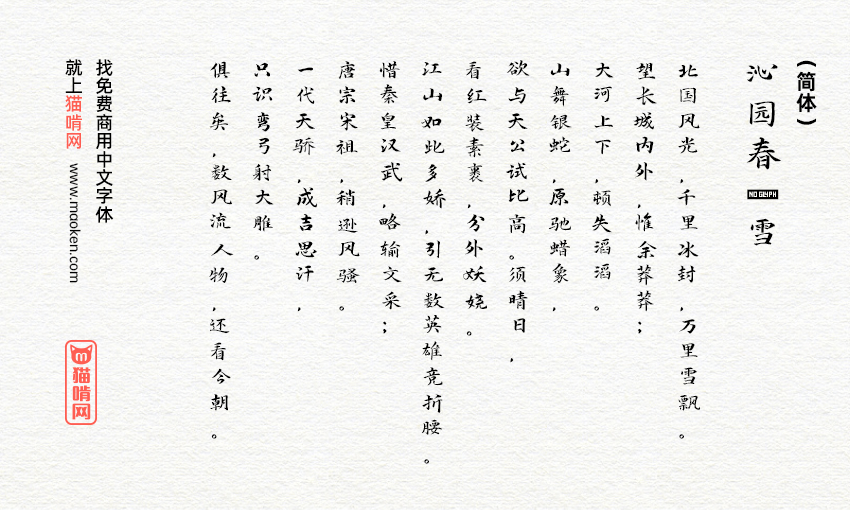 （简体）
沁园春 NO GLYPH 雪
北国风光，千里冰封，万里雪飘。
望长城内外，惟余莽莽；
大河上下，顿失滔滔。
山舞银蛇，原驰蜡象，
欲与天公试比高。须晴日，
看红装素裹，分外妖娆。
江山如此多娇，引无数英雄竞折腰。
惜秦皇汉武，略输文采；
唐宗宋祖，稍逊风骚。
一代天骄，成吉思汗，
只识弯弓射大雕。
俱往矣，数风流人物，还看今朝。
找免费商用中文字体
就上猫啃网 www.mooken.com
猫啃网